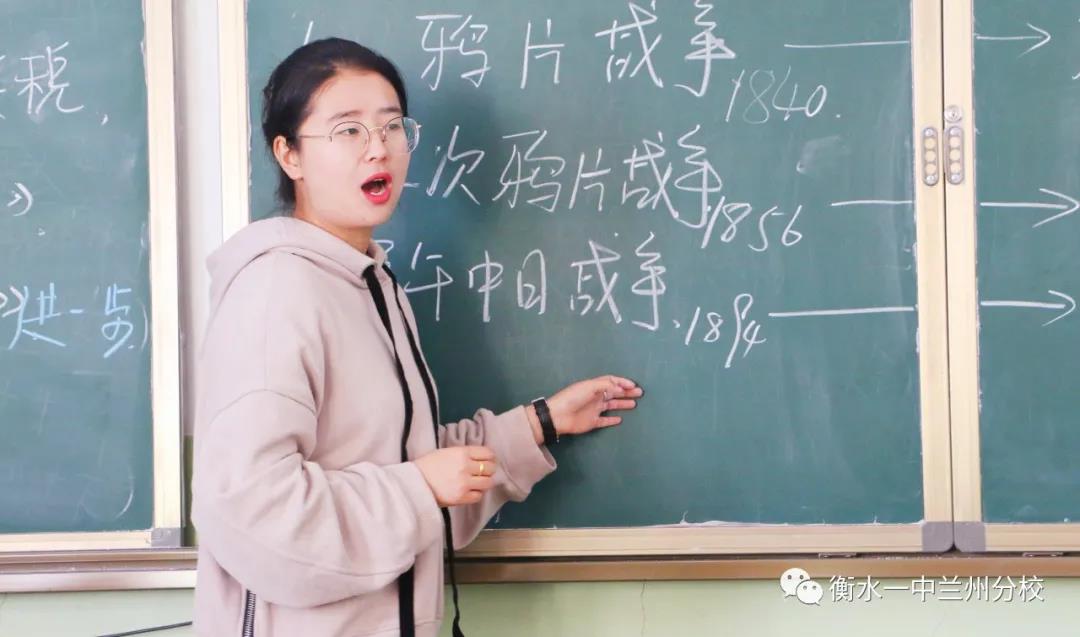 税,
》
进一步)
鸦片战争1840.
次鸦片战争1856
午中日战争.1894
衡水一中兰州分校